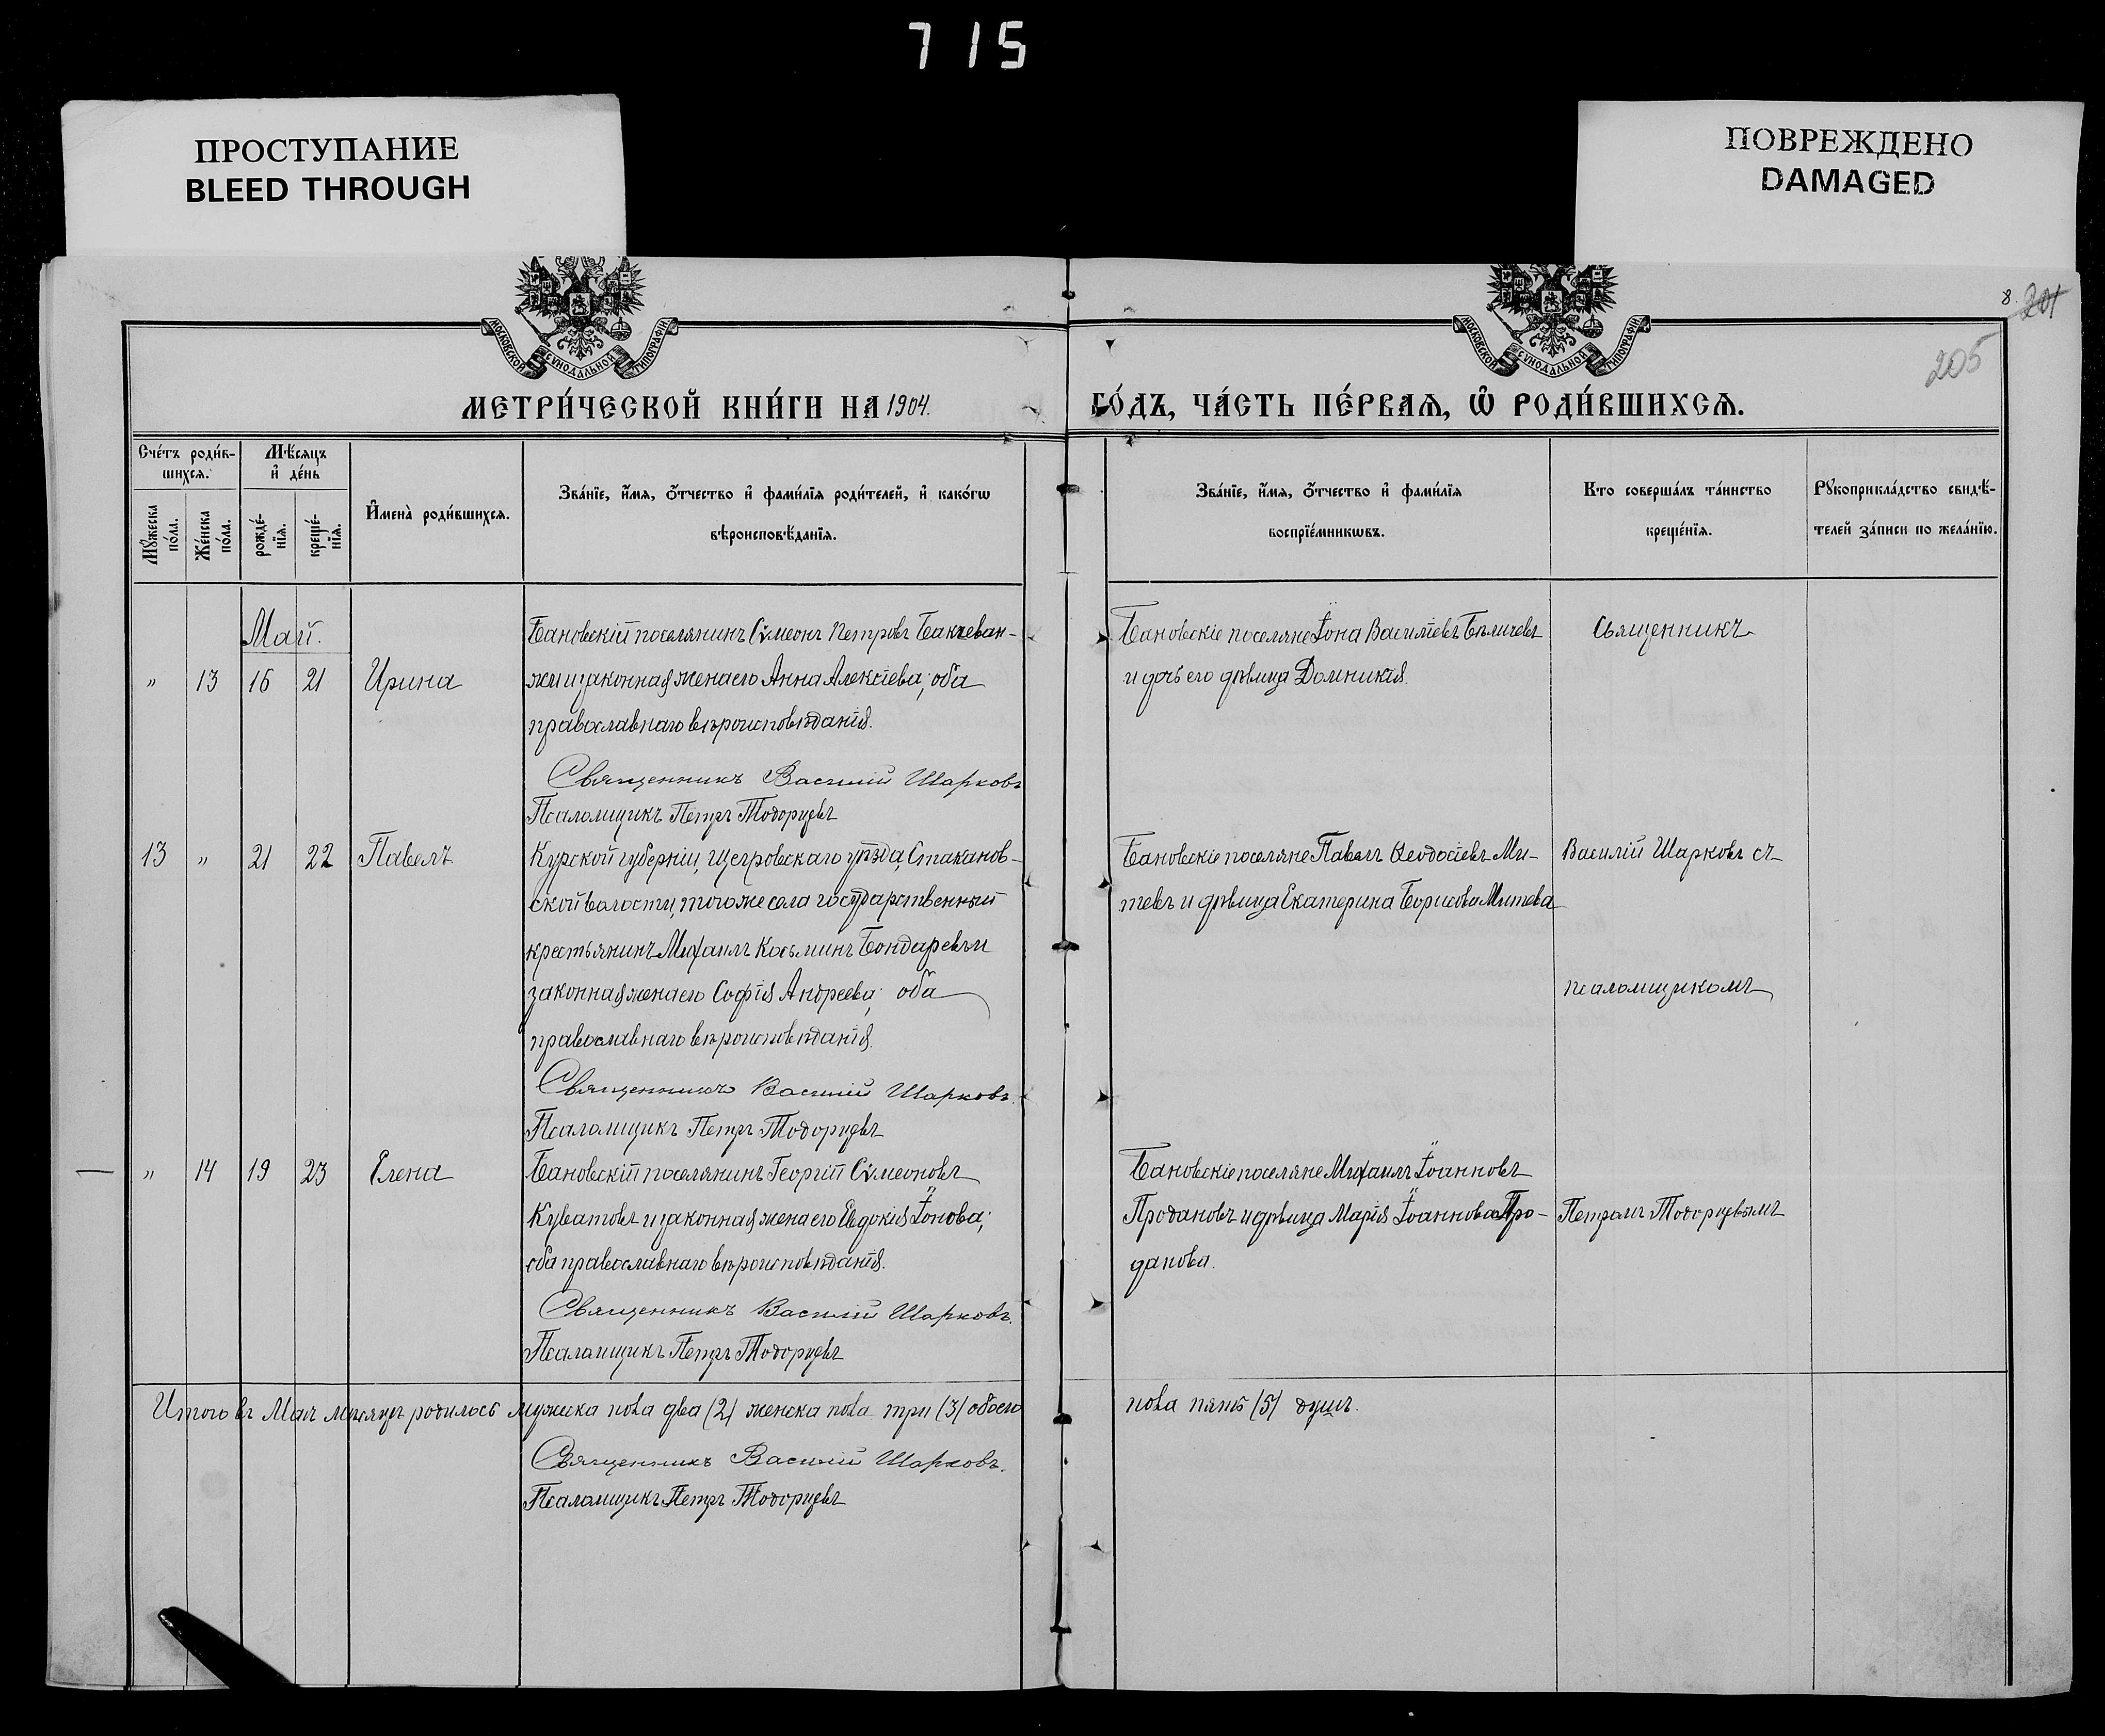 715
ПРОСТУПАНИЕ
BLEED THROUGH
ПОВРЕЖДЕНО
DAMAGED
МОСКОВСКОЙ СѴНОДАЛЬНОЙ ТИПОГРАФІИ.
МОСКОВСКОЙ СѴНОДАЛЬНОЙ ТИПОГРАФІИ.
8. 201
205
МЕТРИ́ЧЕСКОЙ КНИ́ГИ НА 1904.
ГО́ДЪ, ЧА́СТЬ ПЕ́РВАѦ, Ѡ҆ РОДИ́ВШИХСѦ.
Сче́тъ роди́в-
шихсѧ.
Мѣ́сѧцъ
и҆ де́нь
Мꙋ́жеска
по́ла.
Же́нска
по́ла.
рожде́-
нїѧ.
креще́-
нїѧ.
И҆мена̀ роди́вшихсѧ.
Зва́нїе, и҆́мѧ, ѻ҆́тчество и҆ фами́лїѧ роди́телей, и҆ како́гѡ
вѣроисповѣ́данїѧ.
Зва́нїе, и҆́мѧ, ѻ҆́тчество и҆ фами́лїѧ
воспрїе́мникѡвъ.
Кто соверша́лъ та́инство
креще́нїѧ.
Рꙋкоприкла́дство свидѣ́-
телей за́писи по жела́нїю.
Май.
Бановскій поселянинъ Сѵмеонъ Петровъ Бакчеван-
„ 13 16 21 Ирина жи и законная жена его Анна Алексіева; оба
православнаго вѣроисповѣданія.
Священникъ Василій Шарковъ
Псаломщикъ Петръ Тодорцевъ
Бановскіе поселяне Іона Василіевъ Бѣличевъ
и дочь его дѣвица Домникія.
Священникъ
13 „ 21 22 Павелъ Курской губерніи, Щегровскаго уѣзда, Стаканов-
ской волости, того же села государственный
крестьянинъ Михаилъ Косьминъ Бондаревъ и
законная жена его Софія Андреева; оба
православнаго вѣроисповѣданія.
Священникъ Василій Шарковъ.
Псаломщикъ Петръ Тодорцевъ
Бановскіе поселяне Павелъ Ѳеодосіевъ Ми-
тевъ и дѣвица Екатерина Борисова Митева
Василій Шарковъ съ
псаломщикомъ
„ 14 19 23 Елена Бановскій поселянинъ Георгій Сѵмеоновъ
Куватовъ и законная жена его Евдокія Іонова;
оба православнаго вѣроисповѣданія.
Священникъ Василій Шарковъ.
Псаломщикъ Петръ Тодорцевъ
Бановскіе поселяне Михаилъ Іоанновъ
Продановъ и дѣвица Марія Іоаннова Про-
данова.
Петромъ Тодорцевымъ
Итого въ Маѣ мѣсяцѣ родилось мужеска пола два (2) женска пола три (3) обоего
пола пять (5) душъ.
Священникъ Василій Шарковъ.
Псаломщикъ Петръ Тодорцевъ